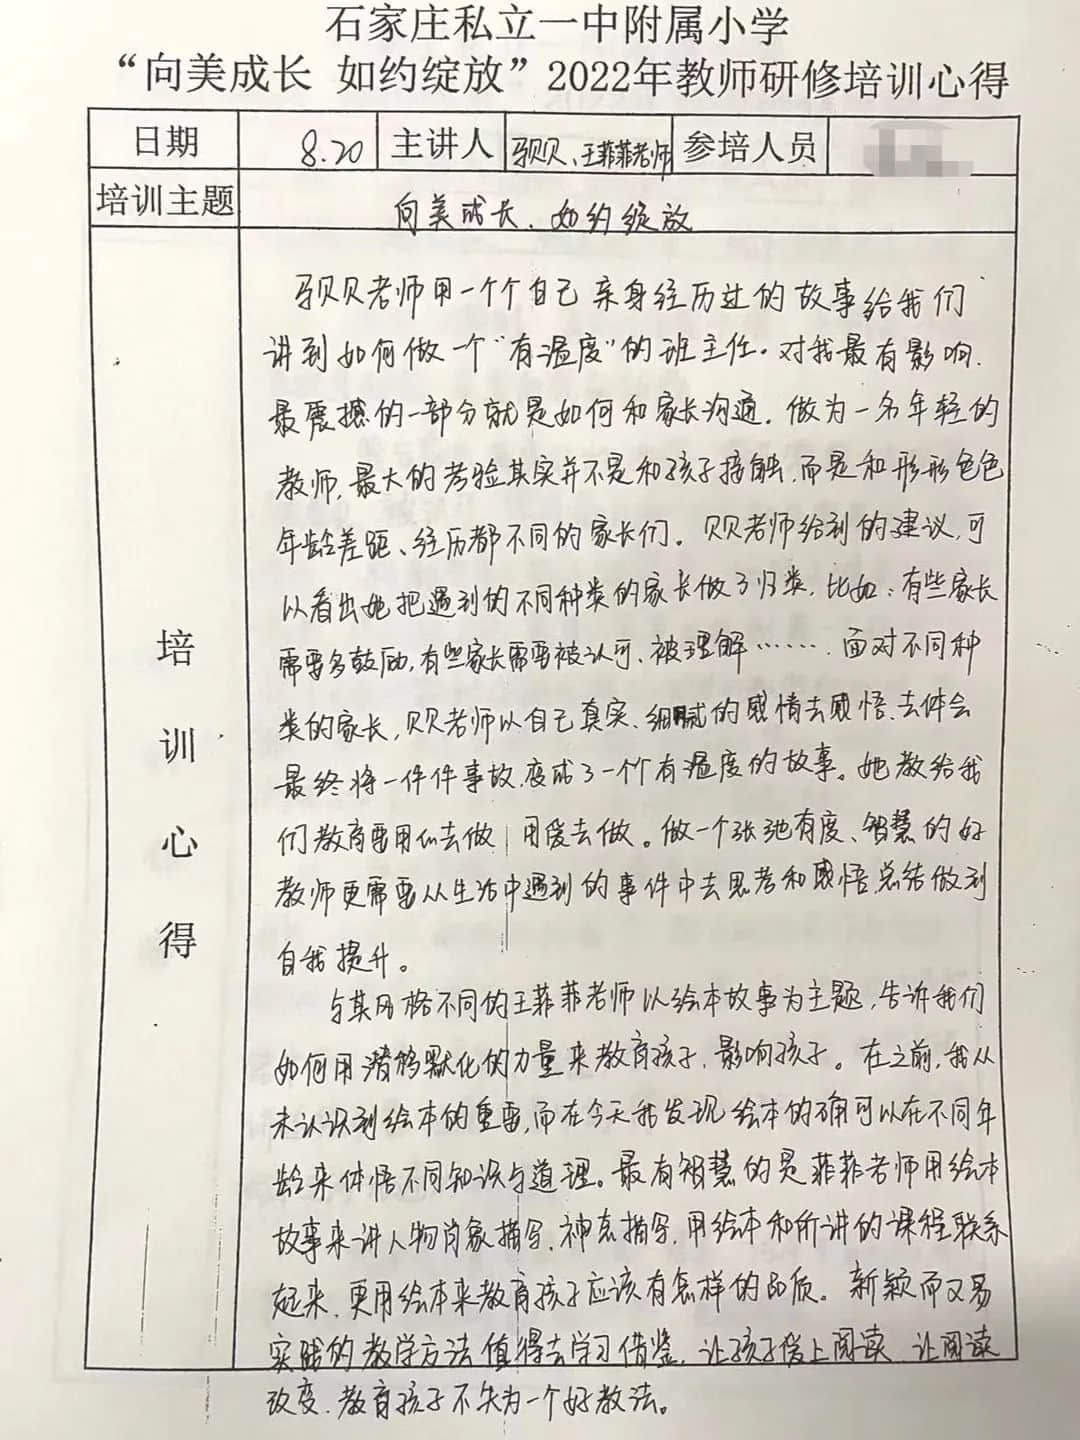 石家庄私立一中附属小学
“向美成长 如约绽放”2022年教师研修培训心得
日期 8.20 主讲人 贝贝、王菲菲老师 参培人员
培训主题 向美成长、如约绽放
培训心得
贝贝老师用一个个自己亲身经历过的故事给我们
讲到如何做一个“有温度”的班主任。对我最有影响、
最震撼的一部分就是如何和家长沟通。做为一名年轻的
教师,最大的考验其实并不是和孩子接触,而是和形形色色
年龄差距、经历都不同的家长们。贝贝老师给到的建议,可
以看出她把遇到的不同种类的家长做了归类,比如:有些家长
需要多鼓励,有些家长需要被认可、被理解……。面对不同种
类的家长,贝贝老师以自己真实、细腻的感情去感悟、去体会
最终将一件件事故,变成了一个个有温度的故事。她教给我
们教育要用心去做,用爱去做。做一个张弛有度、智慧的好
教师更需要从生活中遇到的事件中去思考和感悟,总结做到
自我提升。
与其风格不同的王菲菲老师以绘本故事为主题,告诉我们
如何用潜移默化的力量来教育孩子,影响孩子。在之前,我从
未认识到绘本的重要,而在今天我发现绘本的确可以在不同年
龄来体悟不同知识与道理。最有智慧的是菲菲老师用绘本
故事来讲人物肖象描写、神态描写,用绘本和所讲的课程联系
起来,更用绘本来教育孩子应该有怎样的品质。新颖而又易
实践的教学方法值得去学习借鉴,让孩子爱上阅读,让阅读
改变、教育孩子不失为一个好教法。